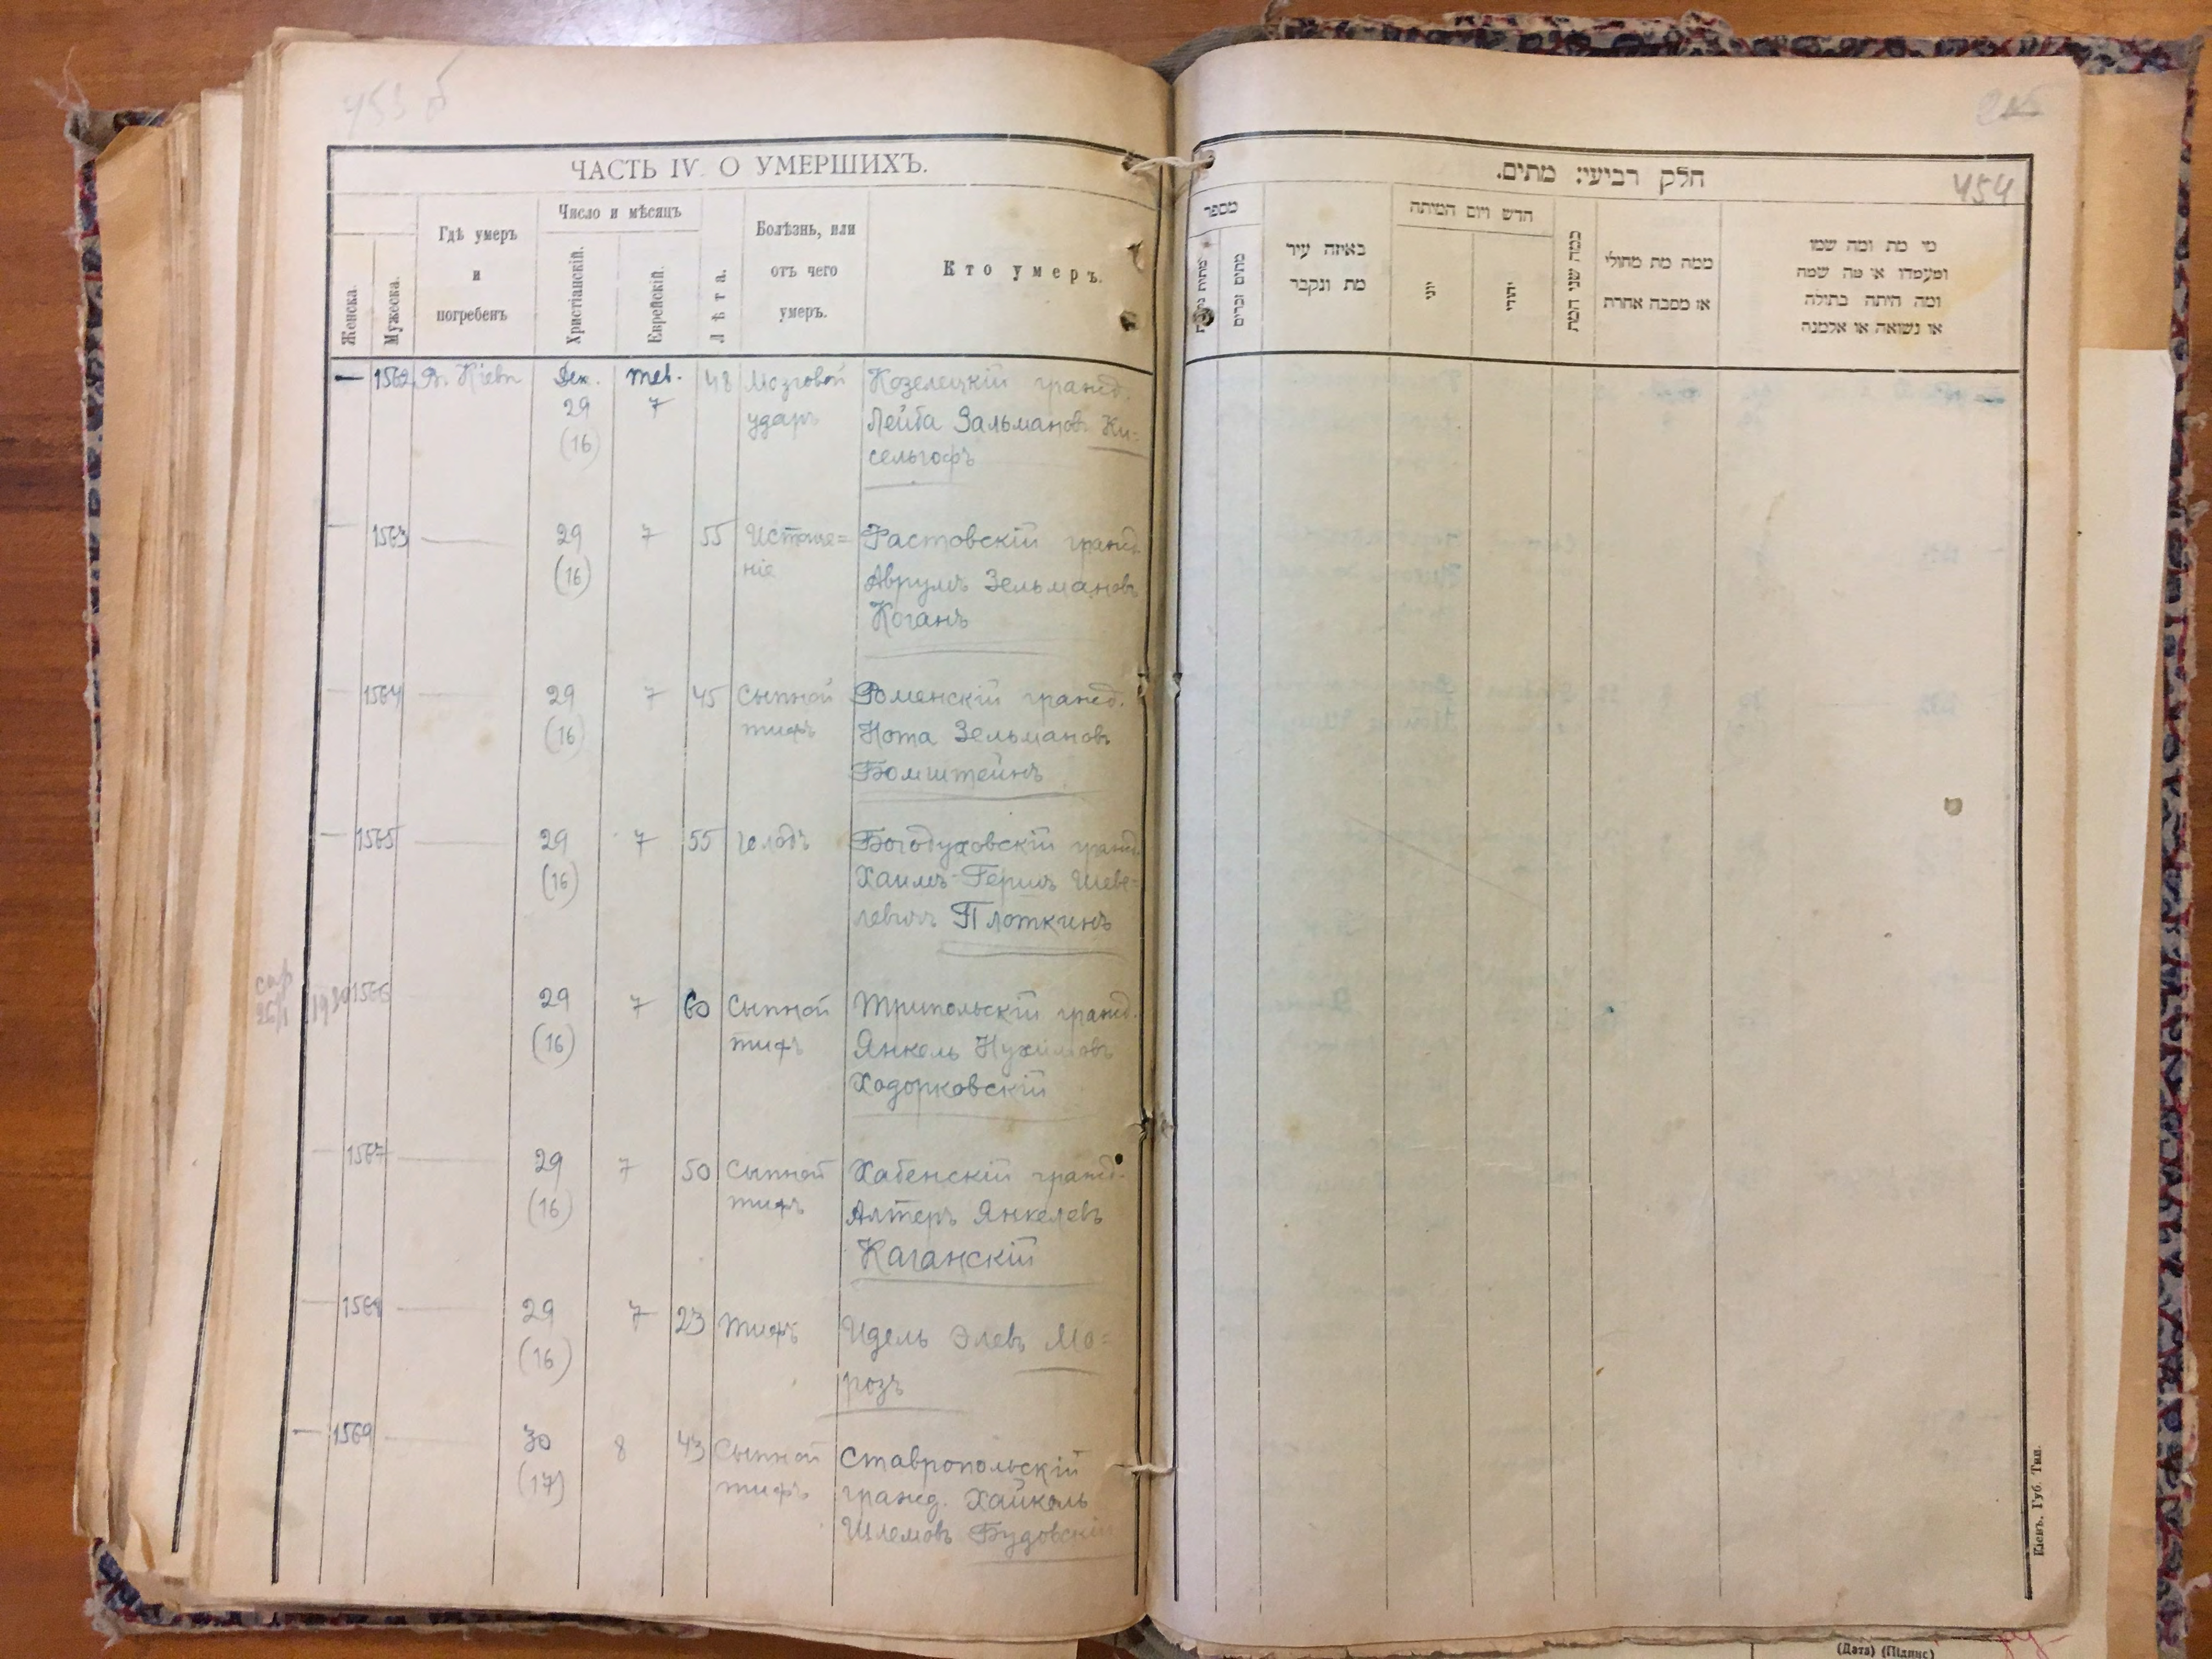 453 б
ЧАСТЬ IV. О УМЕРШИХЪ.
Женска.
Мужеска.
Гдѣ умеръ
и
погребенъ
Число и мѣсяцъ
Христіанскій.
Еврейскій.
Лѣта.
Болѣзнь, или
отъ чего
умеръ.
Кто умеръ.
— 1562 В. Кіевѣ Дек. теб. 48 Мозговой Козелецкій гражд.
29 7 ударъ Лейба Зальмановъ Ки=
(16) сельгофъ
— 1563 — 29 7 55 Истоще= Фастовскій гражд.
(16) ніе Аврумъ Зельмановъ
Коганъ
— 1564 — 29 7 45 Сыпной Роменскій гражд.
(16) тифъ Нота Зельмановъ
Бомштейнъ
— 1565 — 29 7 55 голодъ Богодуховскій гражд.
(16) Хаимъ-Гершъ Шеве=
левичъ Плоткинъ
1566 29 7 60 Сыпной Трипольскій гражд.
(16) тифъ Янкель Нухимовъ
Ходорковскій
— 1567 — 29 7 50 Сыпной Хабенскій гражд.
(16) тифъ Алтеръ Янкелевъ
Каганскій
— 1568 — 29 7 23 тифъ Идель Элевъ Мо=
(16) розъ
— 1569 — 30 8 43 Сыпной Ставропольскій
(17) тифъ гражд. Хайкель
Шлемовъ Будовскій
חלק רביעי: מתים.
454
מספר
מתים זכרים
באיזה עיר
מת ונקבר
חדש ויום המיתה
יוני
יהודי
כמה שני המת
ממה מת מחולי
או מסבה אחרת
מי מת ומה שמו
ומעמדו או מה שמה
ומה היתה בתולה
או נשואה או אלמנה
Кіевъ. Губ. Тип.
(Дата) (Підпис)